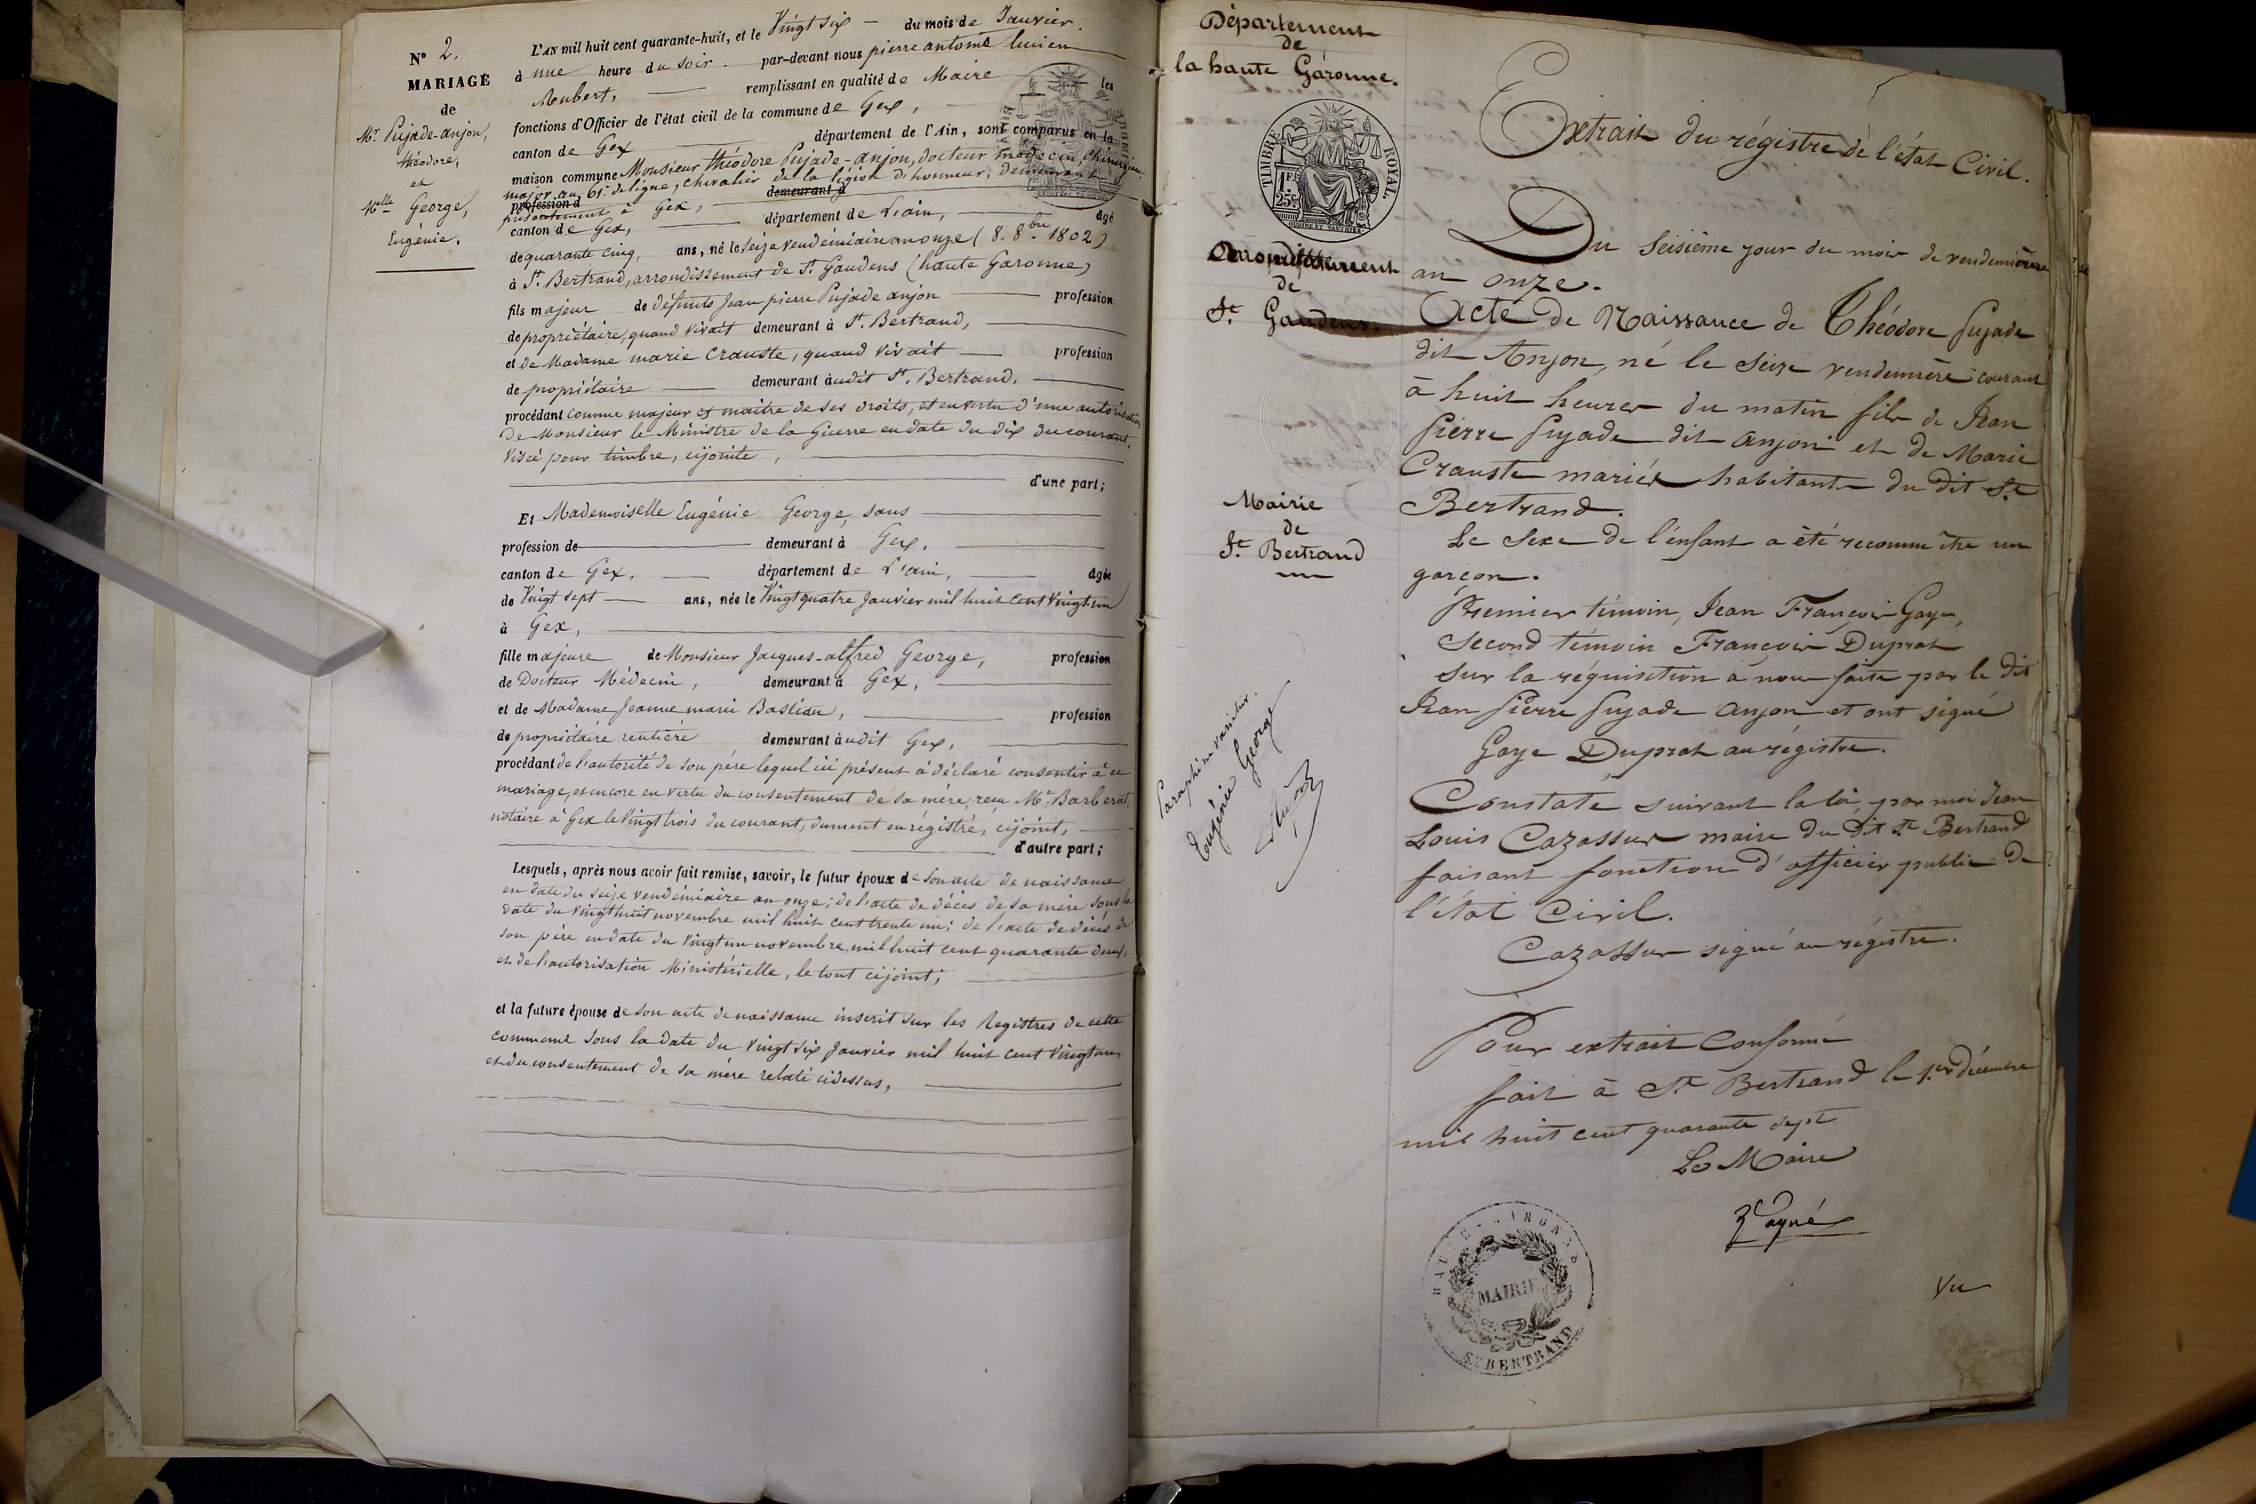 N° 2.
MARIAGE
de
Mr Pujade-anjou,
théodore,
et
Melle George,
Eugénie.
L'AN mil huit cent quarante-huit, et le Vingt six du mois de Janvier.
à une heure du soir par-devant nous pierre antome lucien
remplissant en qualité de Maire les
fonctions d'Officier de l'état civil de la commune de Gex,
canton de Gex département de l'Ain, sont comparus en la
maison commune Monsieur théodore Pujade-anjou, docteur médecin Chirurgien
major au 61e de ligne, chevalier de la légion d'honneur, demeurant
profession d demeurant à
présentement à Gex,
canton de Gex, département de L'ain, âgé
de quarante cinq, ans, né le Seize vendémiaire an onze (8. 8bre 1802)
à St. Bertrand, arrondissement de St. Gaudens (haute Garonne)
fils majeur de défunts Jean pierre Pujade anjou profession
de propriétaire, quand vivait demeurant à St. Bertrand,
et de Madame marie Crauste, quand vivait profession
de propriétaire demeurant audit St. Bertrand.
procédant comme majeur et maitre de ses droits, et en vertu d'une autorisation
de Monsieur le Ministre de la Guerre en date du dix du courant,
visée pour timbre, cijointe,
d'une part;
Et Mademoiselle Eugénie George, sans
profession de demeurant à Gex.
canton de Gex. département de L'ain, âgée
de Vingt sept ans, née le Vingt quatre Janvier mil huit Cent Vingt un
à Gex,
fille majeure de Monsieur Jacques-alfred George, profession
de Docteur Médecin, demeurant à Gex,
et de Madame Jeanne marie Bastian, profession
de propriétaire rentière demeurant audit Gex,
procédant de l'autorité de son père lequel ici présent a déclaré consentir à ce
mariage, et encore en vertu du consentement de sa mère, reçu Me. Barberat,
notaire à Gex le Vingt trois du courant, dument enrégistré, cijoint,
d'autre part;
Lesquels, après nous avoir fait remise, savoir, le futur époux de son acte de naissance
en date du seize vendémiaire an onze; de l'acte de décès de sa mère sous la
date du vingt huit novembre mil huit cent trente un; de l'acte de décès de
son père en date du vingt un novembre mil huit cent quarante deux,
et de l'autorisation Ministérielle, le tout cijoint;
et la future épouse de son acte de naissance inscrit sur les Registres de cette
commune sous la date du vingt six Janvier mil huit cent vingt un,
et du consentement de sa mère relaté cidessus,
Département
de
la haute Garonne.
TIMBRE ROYAL.
1F. 25c.
Arrondissement
de
St. Gaudens.
Mairie
de
St. Bertrand
Paraphé ne varietur.
Eugénie George
Extrait du régistre de l'état Civil.
Du Seisième jour du mois de vendemière
an onze.
Acte de Naissance de Théodore Pujade
dit Anjou, né le Seize vendemière courant
à huit heures du matin fils de Jean
Pierre Pujade dit anjou et de Marie
Crauste mariés habitants du dit St
Bertrand.
Le Sexe de l'enfant a été reconnu être un
garçon.
Premier témoin, Jean François Gaye,
Second témoin François Duprat
Sur la réquisition à nous faite par le dit
Jean Pierre Pujade Anjou et ont signé
Gaye Duprat au régistre.
Constaté suivant la loi, par moi Jean
Louis Cazassus maire du dit St Bertrand
faisant fonction d'officier public de
l'état Civil.
Cazassus signé au régistre.
Pour extrait Conforme
fait à St Bertrand le 1er décembre
mil huit cent quarante sept
Le Maire
Vu
HAUTE-GARONNE
MAIRIE
ST BERTRAND